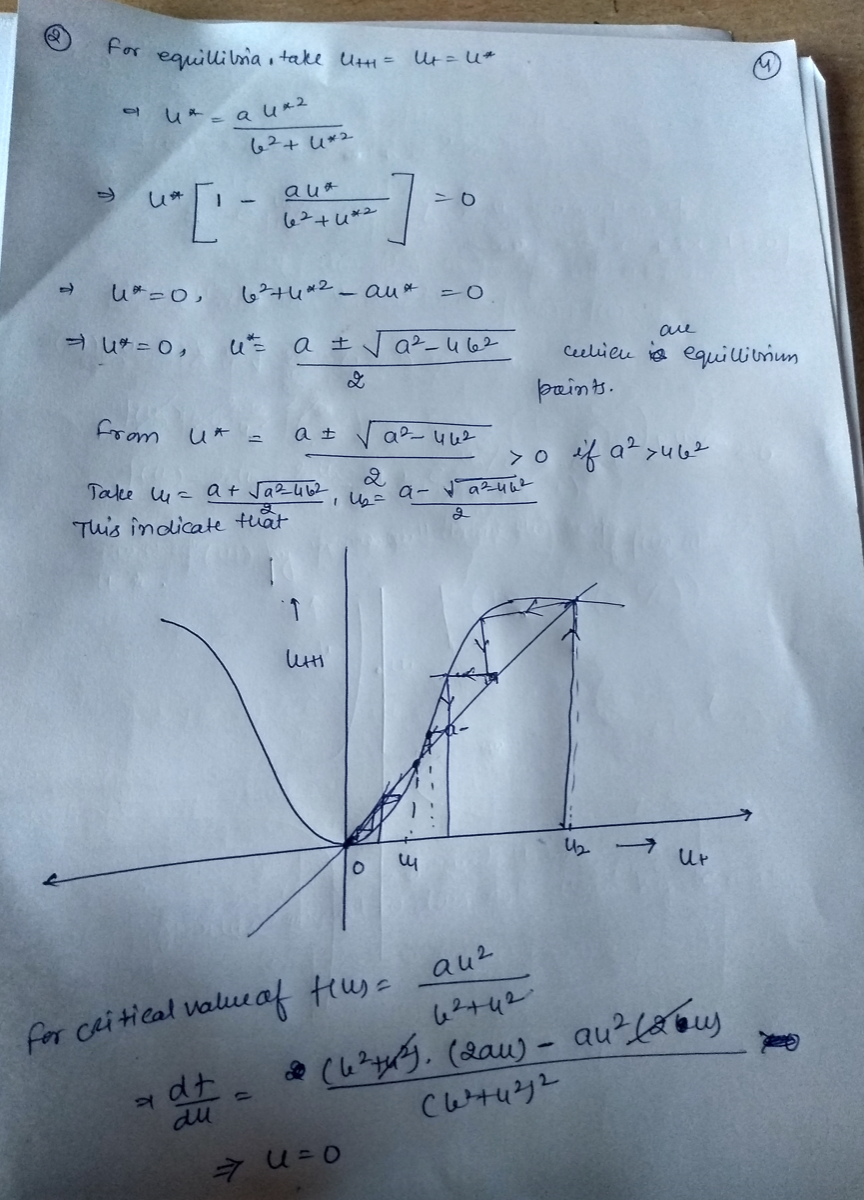 ② For equillibria, take u_{t+1} = u_t = u*
④
⇒ u* = a u*² / (b² + u*²)
⇒ u* [ 1 - au* / (b² + u*²) ] = 0
⇒ u* = 0, b² + u*² - au* = 0
⇒ u* = 0, u* = (a ± √(a² - 4b²)) / 2 which are equillibrium
points.
From u* = (a ± √(a² - 4b²)) / 2 > 0 if a² > 4b²
Take u₁ = (a + √(a² - 4b²)) / 2, u₂ = (a - √(a² - 4b²)) / 2
This indicate that
↑
u_{t+1}
0 u₁ u₂ → u_t
For critical value of f(u) = au² / (b² + u²)
⇒ df/du = (b² + u²) · (2au) - au² (2u) / (b² + u²)²
⇒ u = 0